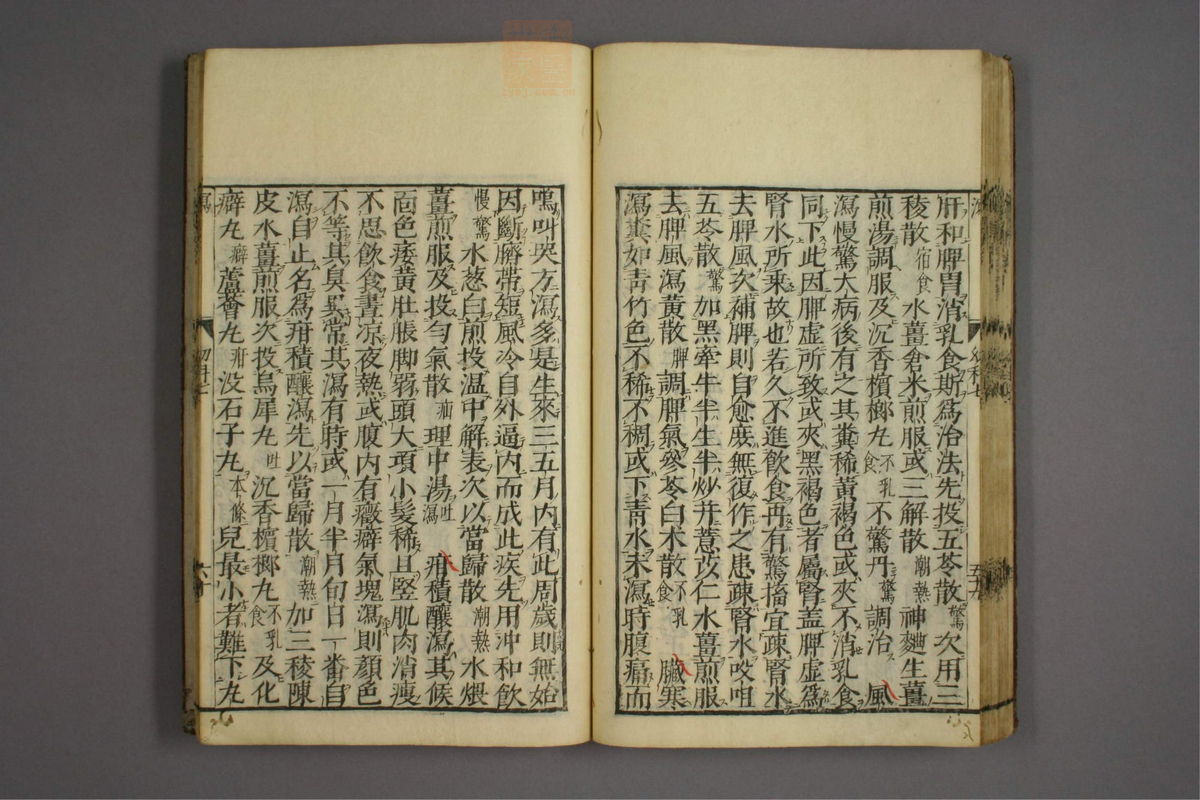 肝和脾胃消乳食斯爲治法先投五苓散驚次用三
稜散宿食水薑倉米煎服或三解散潮熱神麯生薑
煎湯調服及沉香檳榔丸不乳食不驚丹驚調治風
瀉慢驚大病後有之其糞稀黄褐色或夾不消乳食
同下此因脾虛所致或夾黑褐色者屬腎蓋脾虛爲
腎水所乗故也若久不進飲食再有驚搐宜疎腎水
去脾風次補脾則自愈庶無復作之患疎腎水㕮咀
五苓散驚加黑牽牛半生半炒并薏苡仁水薑煎服
去脾風瀉黄散脾調脾氣參苓白术散不乳食臟寒
瀉糞如青竹色不稀不稠或下青水未瀉時腹痛而
鳴叫哭方瀉多是生來三五月内有此周歲則無始
因斷臍帶短風冷自外逼内而成此疾先用冲和飲
慢驚水葱白煎投温中解表次以當歸散潮熱水煨
薑煎服及投勻氣散疝理中湯吐瀉疳積釀瀉其候
面色痿黄肚脹脚弱頭大項小髮稀且竪肌肉消瘦
不思飲食晝凉夜熱或腹内有癥癖氣塊瀉則顔色
不等其臭異常其瀉有時或一月半月旬日一番自
瀉自止名爲疳積釀瀉先以當歸散潮熱加三稜陳
皮水薑煎服次投烏犀丸吐沉香檳榔丸不乳食及化
癖丸癖蘆薈丸疳没石子丸本條兒最小者難下丸